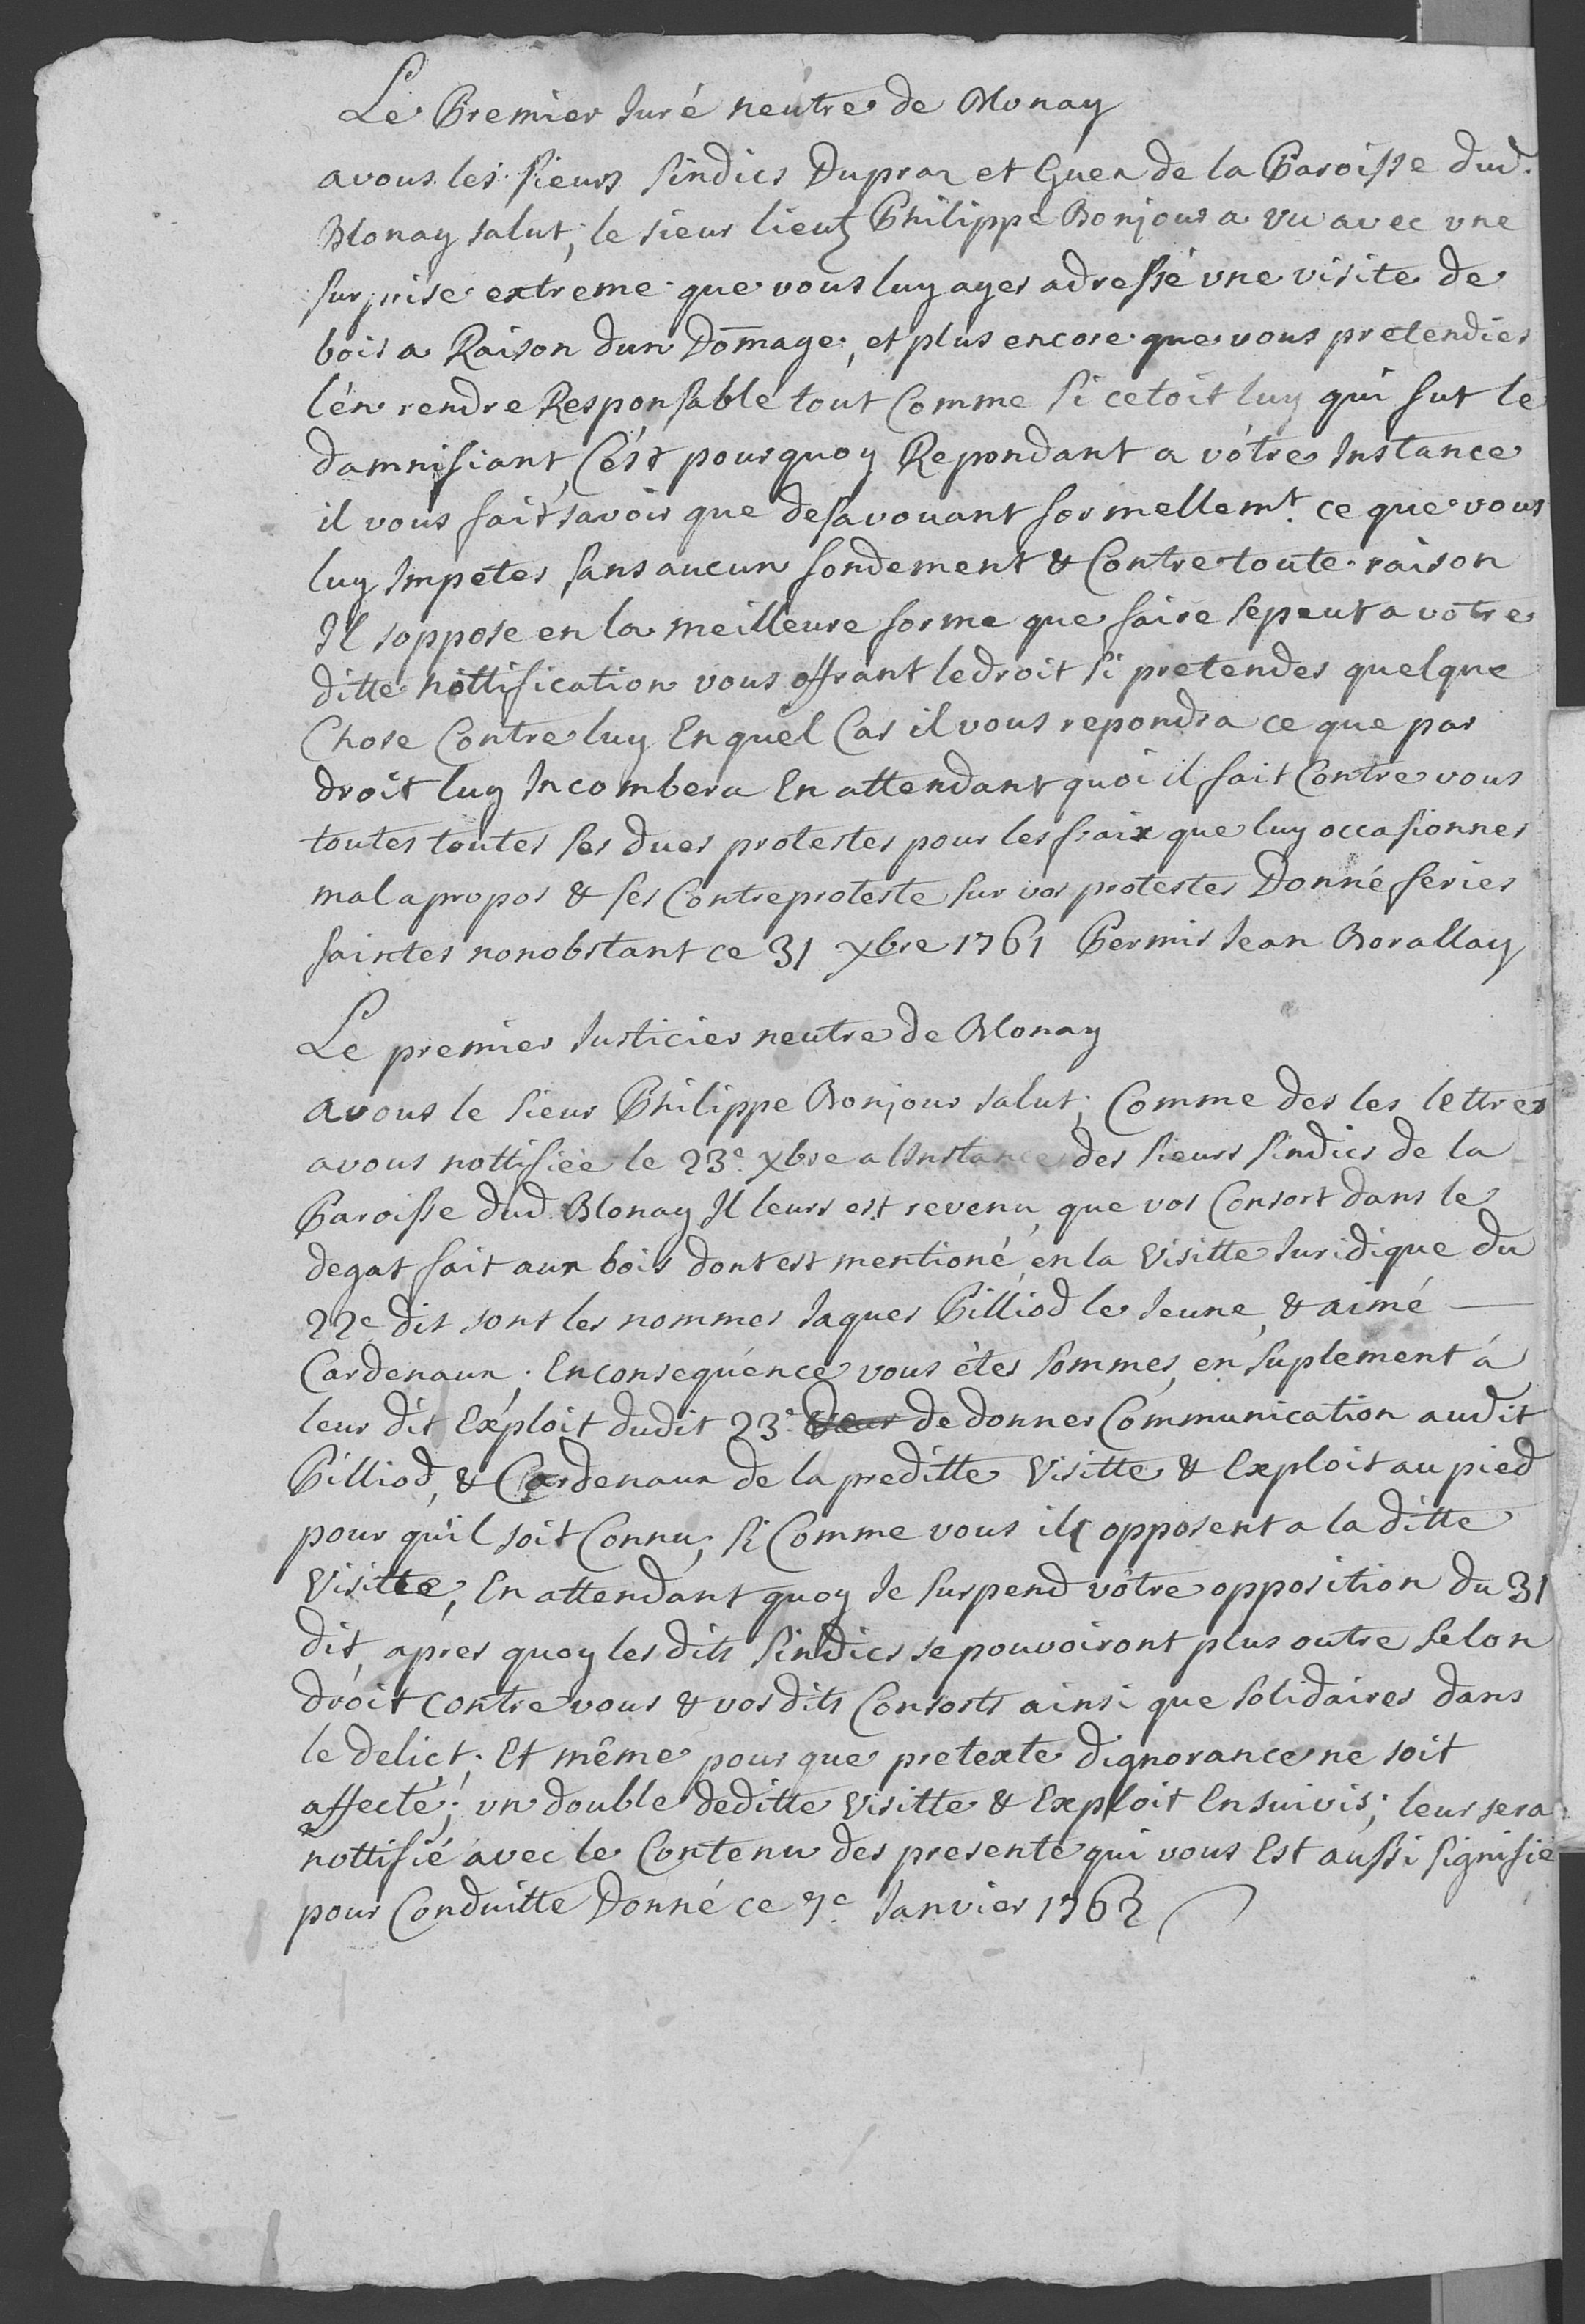 Le Premier Juré neutre de Blonay
a vous les sieurs sindics Dupraz et Guex de la Paroisse dud.
Blonay salut; le sieur lieut Philippe Bonjour a vu avec une
surprise extreme que vous luy ayes adressé une visite de
bois a Raison dun Dom̄age, et plus encore que vous pretendies
l'en rendre Responsable tout Comme si cetoit luy qui fut le
damnifiant, C'est pourquoy Repondant a vôtre Instance
il vous fait savoir que desavouant formellemt. ce que vous
luy Impétes sans aucun fondement & Contre toute raison
Il soppose en la meilleure forme que faire se peut a votre
ditte nottification vous offrant le droit si pretendes quelque
Chose Contre luy En quel Cas il vous repondra ce que par
droit luy Incombera En attendant quoi il fait Contre vous
toutes toutes ses dues protestes pour les fraix que luy occasionnes
mal a propos & ses Contreproteste sur vos protestes Donné feries
saintes nonobstant ce 31 xbre 1761 Permis Jean Borallay
Le premier Justicier neutre de Blonay
a vous le sieur Philippe Bonjour salut; Comme des les lettres
a vous nottifiée le 23e. xbre a lInstance des sieurs sindics de la
Paroisse dud. Blonay Il leurs est revenu, que vos Consort dans le
degat fait aux bois dont est mentioné, en la Visitte Juridique du
22e dit sont les nommes Jaques Pilliod le Jeune, & aimé —
Cardenaux; En consequence vous êtes sommes, en suplement á
leur dit Exploit dudit 23e. de donner Communication audit
Pilliod, & Cardenaux de la preditte Visitte & Exploit au pied
pour qu'il soit Connu; si Comme vous ils opposent a la ditte
Visitte, En attendant quoy Je suspend vôtre opposition du 31
dit, apres quoy les dits sindics se pouvoiront plus outre selon
droit contre vous & vos dits Consorts ainsi que solidaires dans
le delict; Et même pour que pretexte dignorance ne soit
affecté; un double deditte Visitte & Exploit Ensuivis; leur sera
nottifié avec le Contenu des presente qui vous Est aussi signifié
pour Conduitte Donné ce 7e. Janvier 1762